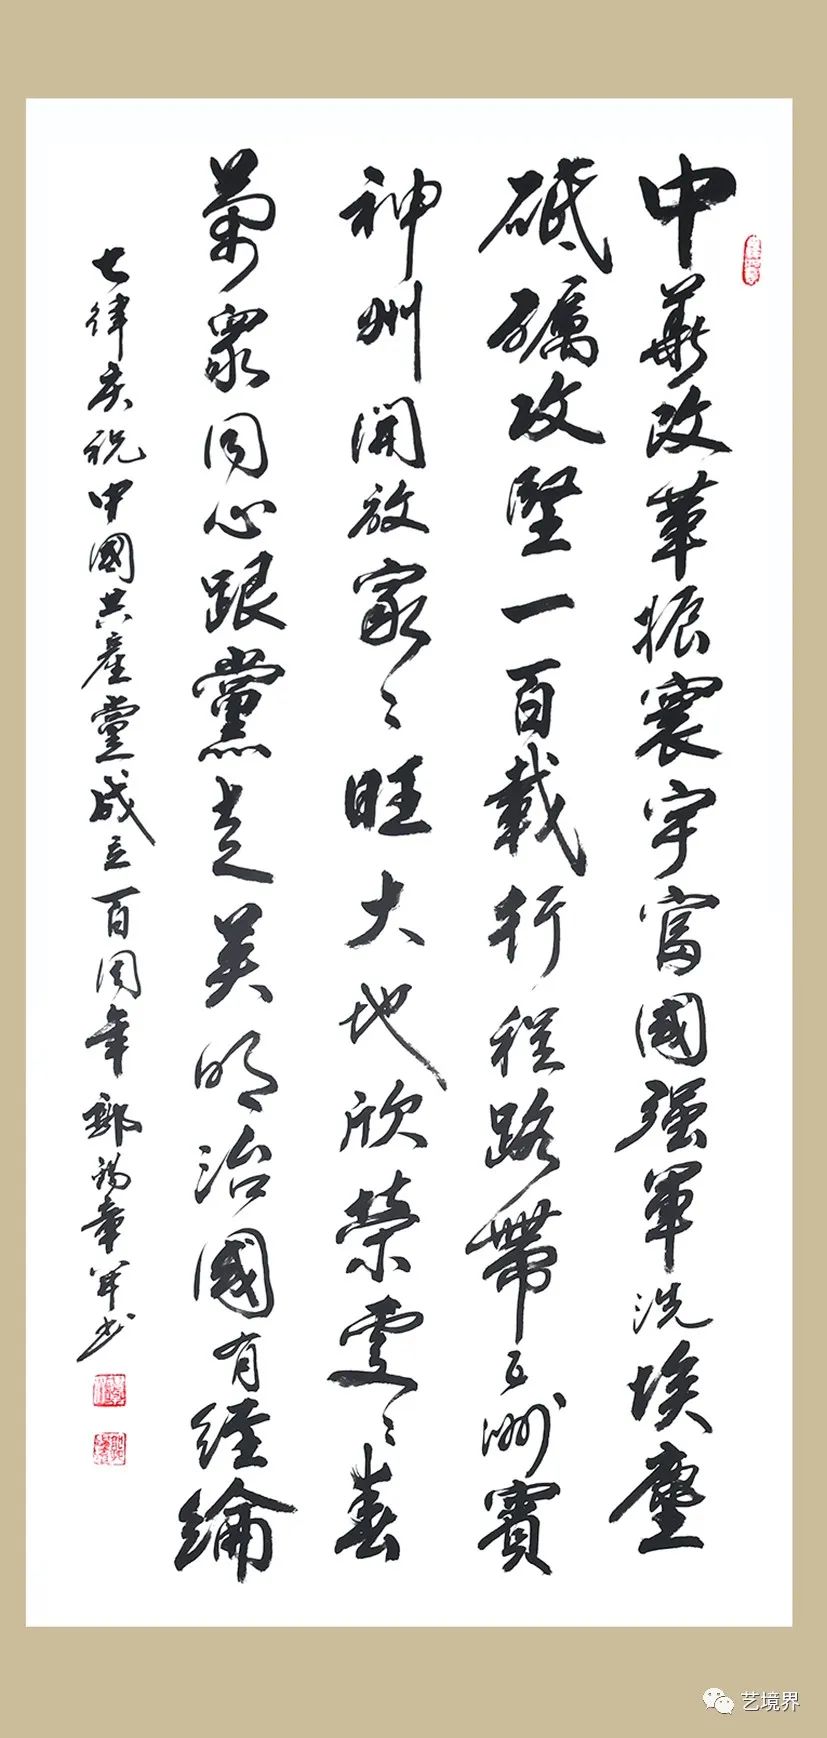 中華改革振寰宇富國强軍洗埃塵
砥礪攻堅一百載行程路帶五洲賓
神州開放家々旺大地欣榮處々春
萬眾同心跟黨走英明治國有經綸
七律庆祝中國共產黨成立百周年 章书
艺境界